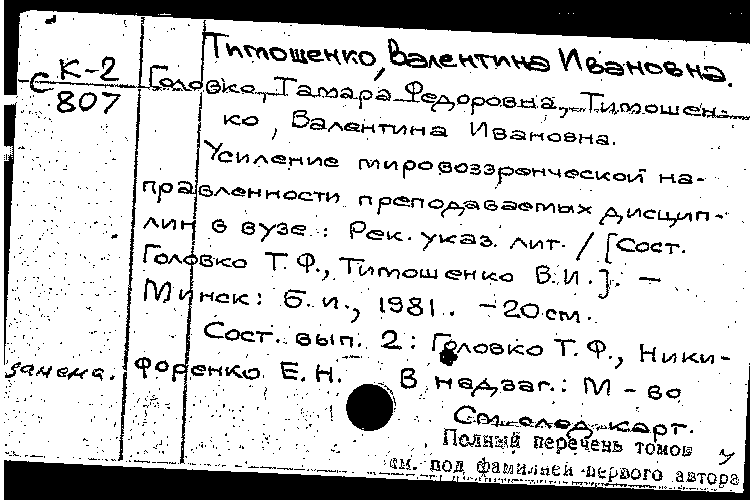 Тимошенко, Валентина Ивановна.
С К-2
807
Головко, Тамара Федоровна, Тимошен-
ко, Валентина Ивановна.
Усиление мировоззренческой на-
правленности преподаваемых дисцип-
лин в вузе: Рек. указ. лит. / [Сост.
Головко Т.Ф., Тимошенко В.И.]. —
Минск: Б. и., 1981. - 20 см.
Сост. вып. 2: Головко Т.Ф., Ники-
форенко Е.Н. В надзаг.: М-во
замена.
См. след. карт.
Полный перечень томов у
см. под фамилией первого автора